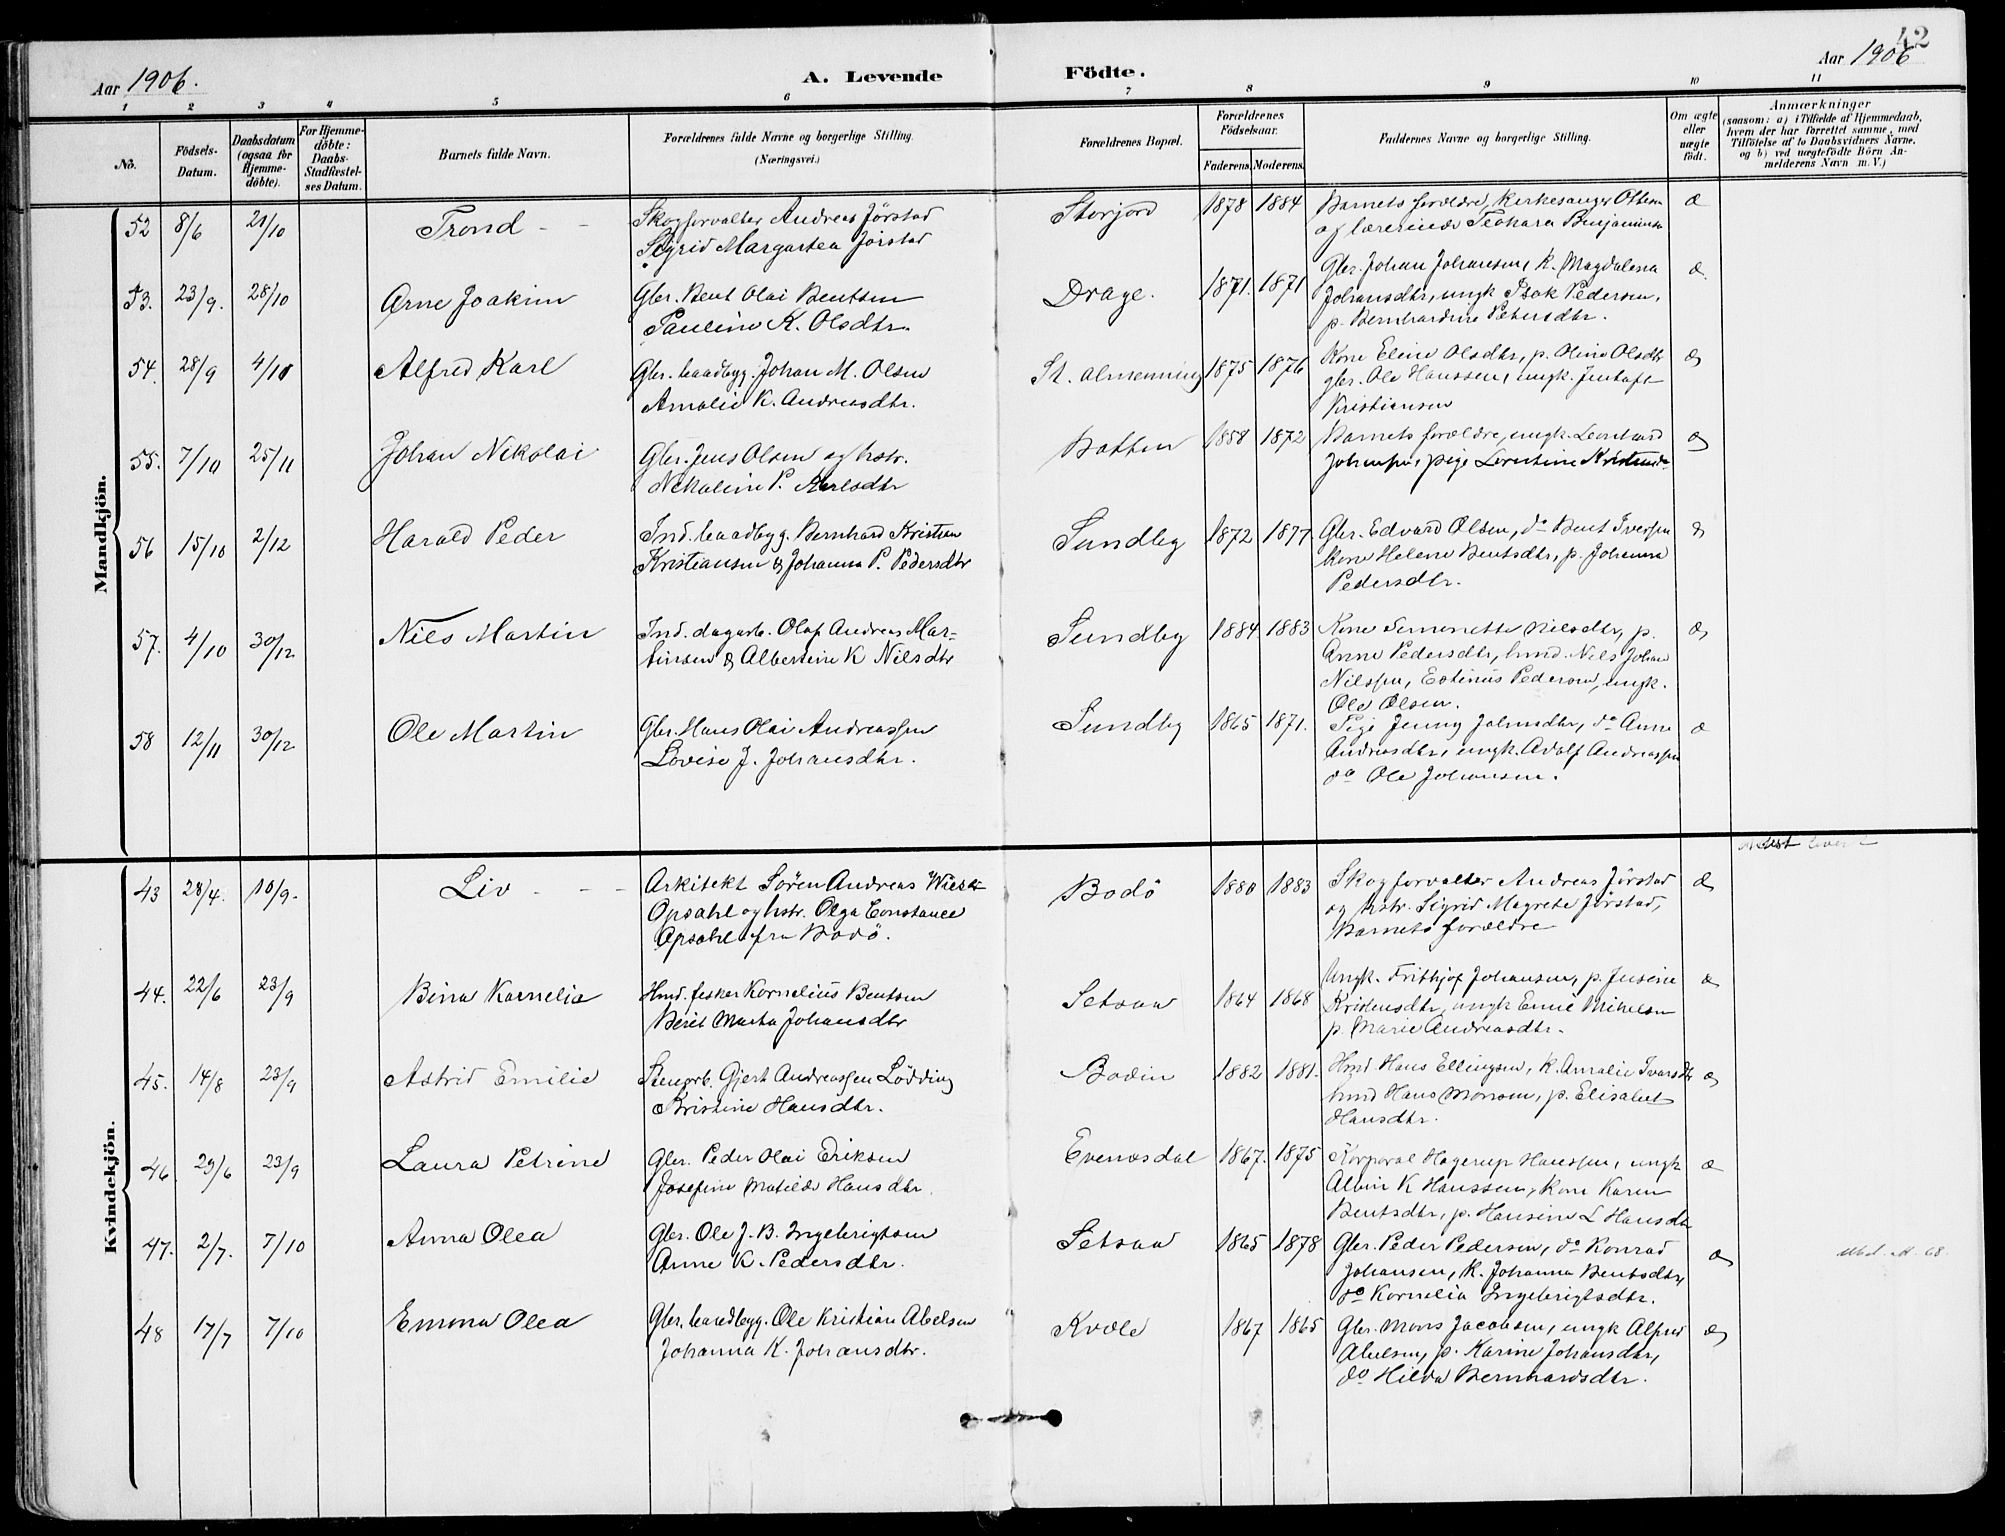 42
Aar 1906.
A. Levende
Födte.
Aar 1906
1 2 3 4 5 6 7 8 9 10 11
No.
Födsels-Datum.
Daabsdatum (ogsaa for Hjemme-döbte).
For Hjemme-döbte: Daabs-Stadfæstel-ses Datum.
Barnets fulde Navn.
Forældrenes fulde Navne og borgerlige Stilling.
(Næringsvei.)
Forældrenes Bopæl.
Forældrenes Födselsaar.
Faderens. Moderens.
Faddernes Navne og borgerlige Stilling.
Om ægte eller uægte födt.
Anmærkninger
(saasom: a) i Tilfælde af Hjemmedaab,
hvem der har forrettet samme, med
Tilföielse af to Daabsvidners Navne,
og b) ved uægtefödte Börn An-
melderens Navn m. V.)
Mandkjön.
52 8/6 21/10 Trond - - Skogforvalter Andreas Jörstad Storjord 1878 1884 Barnets forældre, Kirkesanger æ
Sigrid Margartea Jörstad og lærerinde
53. 23/9. 28/10 Arne Joakim Gbr. Bent Olai Bentsen Drage. 1871. 1871 Gbr. Johan Johansen, k. Magdalena æ
Pauline K. Olsdtr. Johansdtr, ungk Isak Pedersen,
p. Bernhardine Petersdtr.
54. 28/9 4/11 Alfred Karl Gbr. baadbyg. Johan M. Olsen St. almenning 1875 1876 Kone Eline Olsdtr, p. Oline Olsdtr æ
Amalie K. Andreasdtr. gbr. Ole Hanssen, ungk.
Kristiansen
55. 7/10 25/11 Johan Nikolai Gbr. Jens Olsen og hstr. Botten 1858 1872 Barnets forældre, ungk. Leonhard æ
Nikoline P. pige Lorentine
56 15/10 2/12 Harald Peder Ind. baadbyg. Bernhard Kristian Sundby 1872 1877 Gbr. Edvard Olsen, do Bent Iversen æ
Kristiansen & Johanna P. Pedersdtr kone Helene Bentsdtr, p. Johanna
Pedersdtr.
57. 4/10 30/12 Nils Martin Ind. dagarb. Olaf Andreas Mar- Sundby 1884 1883 Kone Simonette Nilsdtr, p. æ
tinsen & Albertine K Nilsdtr Anne Pedersdtr, hmd. Nils Johan
Nilssen, Edvard Pedersen, ungk.
Ole Olsen.
58 12/11 30/12 Ole Martin Gbr. Hans Olai Andreassen Sundby 1865 1871. Pige Jenny Johnsdtr, do Anne æ
Lovise J. Johansdtr. Andreasdtr, ungk. Adolf Andreassen
do Ole Johansen.
Kvindekjön.
43 28/4. 10/9. Liv - - - Arkitekt Sören Andreas Wiese Bodö 1880 1883 Skogforvalter Andreas Jörstad æ
Opsahl og hstr. Olga Constance og hstr. Sigrid Magrete Jörstad,
Opsahl fra Bodö. Barnets forældre
44. 22/6 23/9 Bina Kornelia Hmd. fisker Kornelius Bentsen Setsaa 1864 1868 Ungk. Frithjof Johansen, p. Jusine æ
Berit Marta Johansdtr Kristensdtr, ungk Emil Mikelsen
p. Marie Andreasdtr.
45. 14/8 23/9 Astrid Emilie Stenarb. Gjert Andreassen Lödding Bodin 1882 1881. Hmd Hans Ellingsen, k. Amalie Ivarsdtr æ
Kristine Hansdtr. hmd Hans Monsen, p. Elisabet
Hansdtr.
46. 29/6 23/9 Laura Petrine Gbr. Peder Olai Eriksen Evenesdal 1867. 1875 Korporal Hagerup Hanssen, ungk æ
Josefine Matilde Hansdtr. Albin K Hanssen, kone Karen
Bentsdtr, p. Hansine L Hansdtr
47. 2/7. 7/10 Anna Olea Gbr. Ole J. B. Ingebrigtsen Setsaa 1865 1878 Gbr. Peder Pedersen, do Konrad æ
Anne K. Pedersdtr. Johansen, k. Johanna Bentsdtr,
do Kornelia Ingebrigtsdtr.
48 17/7 7/10 Emma Olea Gbr. baadbyg. Ole Kristian Abelsen Kvæle 1867 1865 Gbr. Mons Jacobsen, ungk Alfred æ
Johanna K. Johansdtr. Abelsen, p. Karine Johansdtr,
do Hilda Bernhardsdtr.